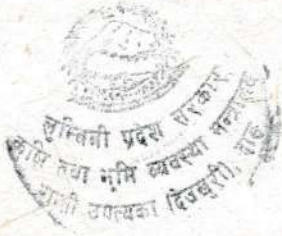 लुम्बिनी प्रदेश सरकार
कृषि तथा भूमि व्यवस्था मन्त्रालय
राप्ती उपत्यका (देउखुरी),